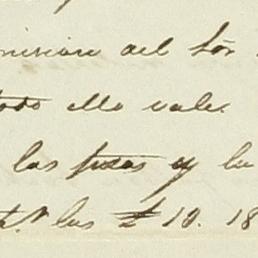 mision del Sor
todo ello vale.
las pesas y la
las £ 10. 18